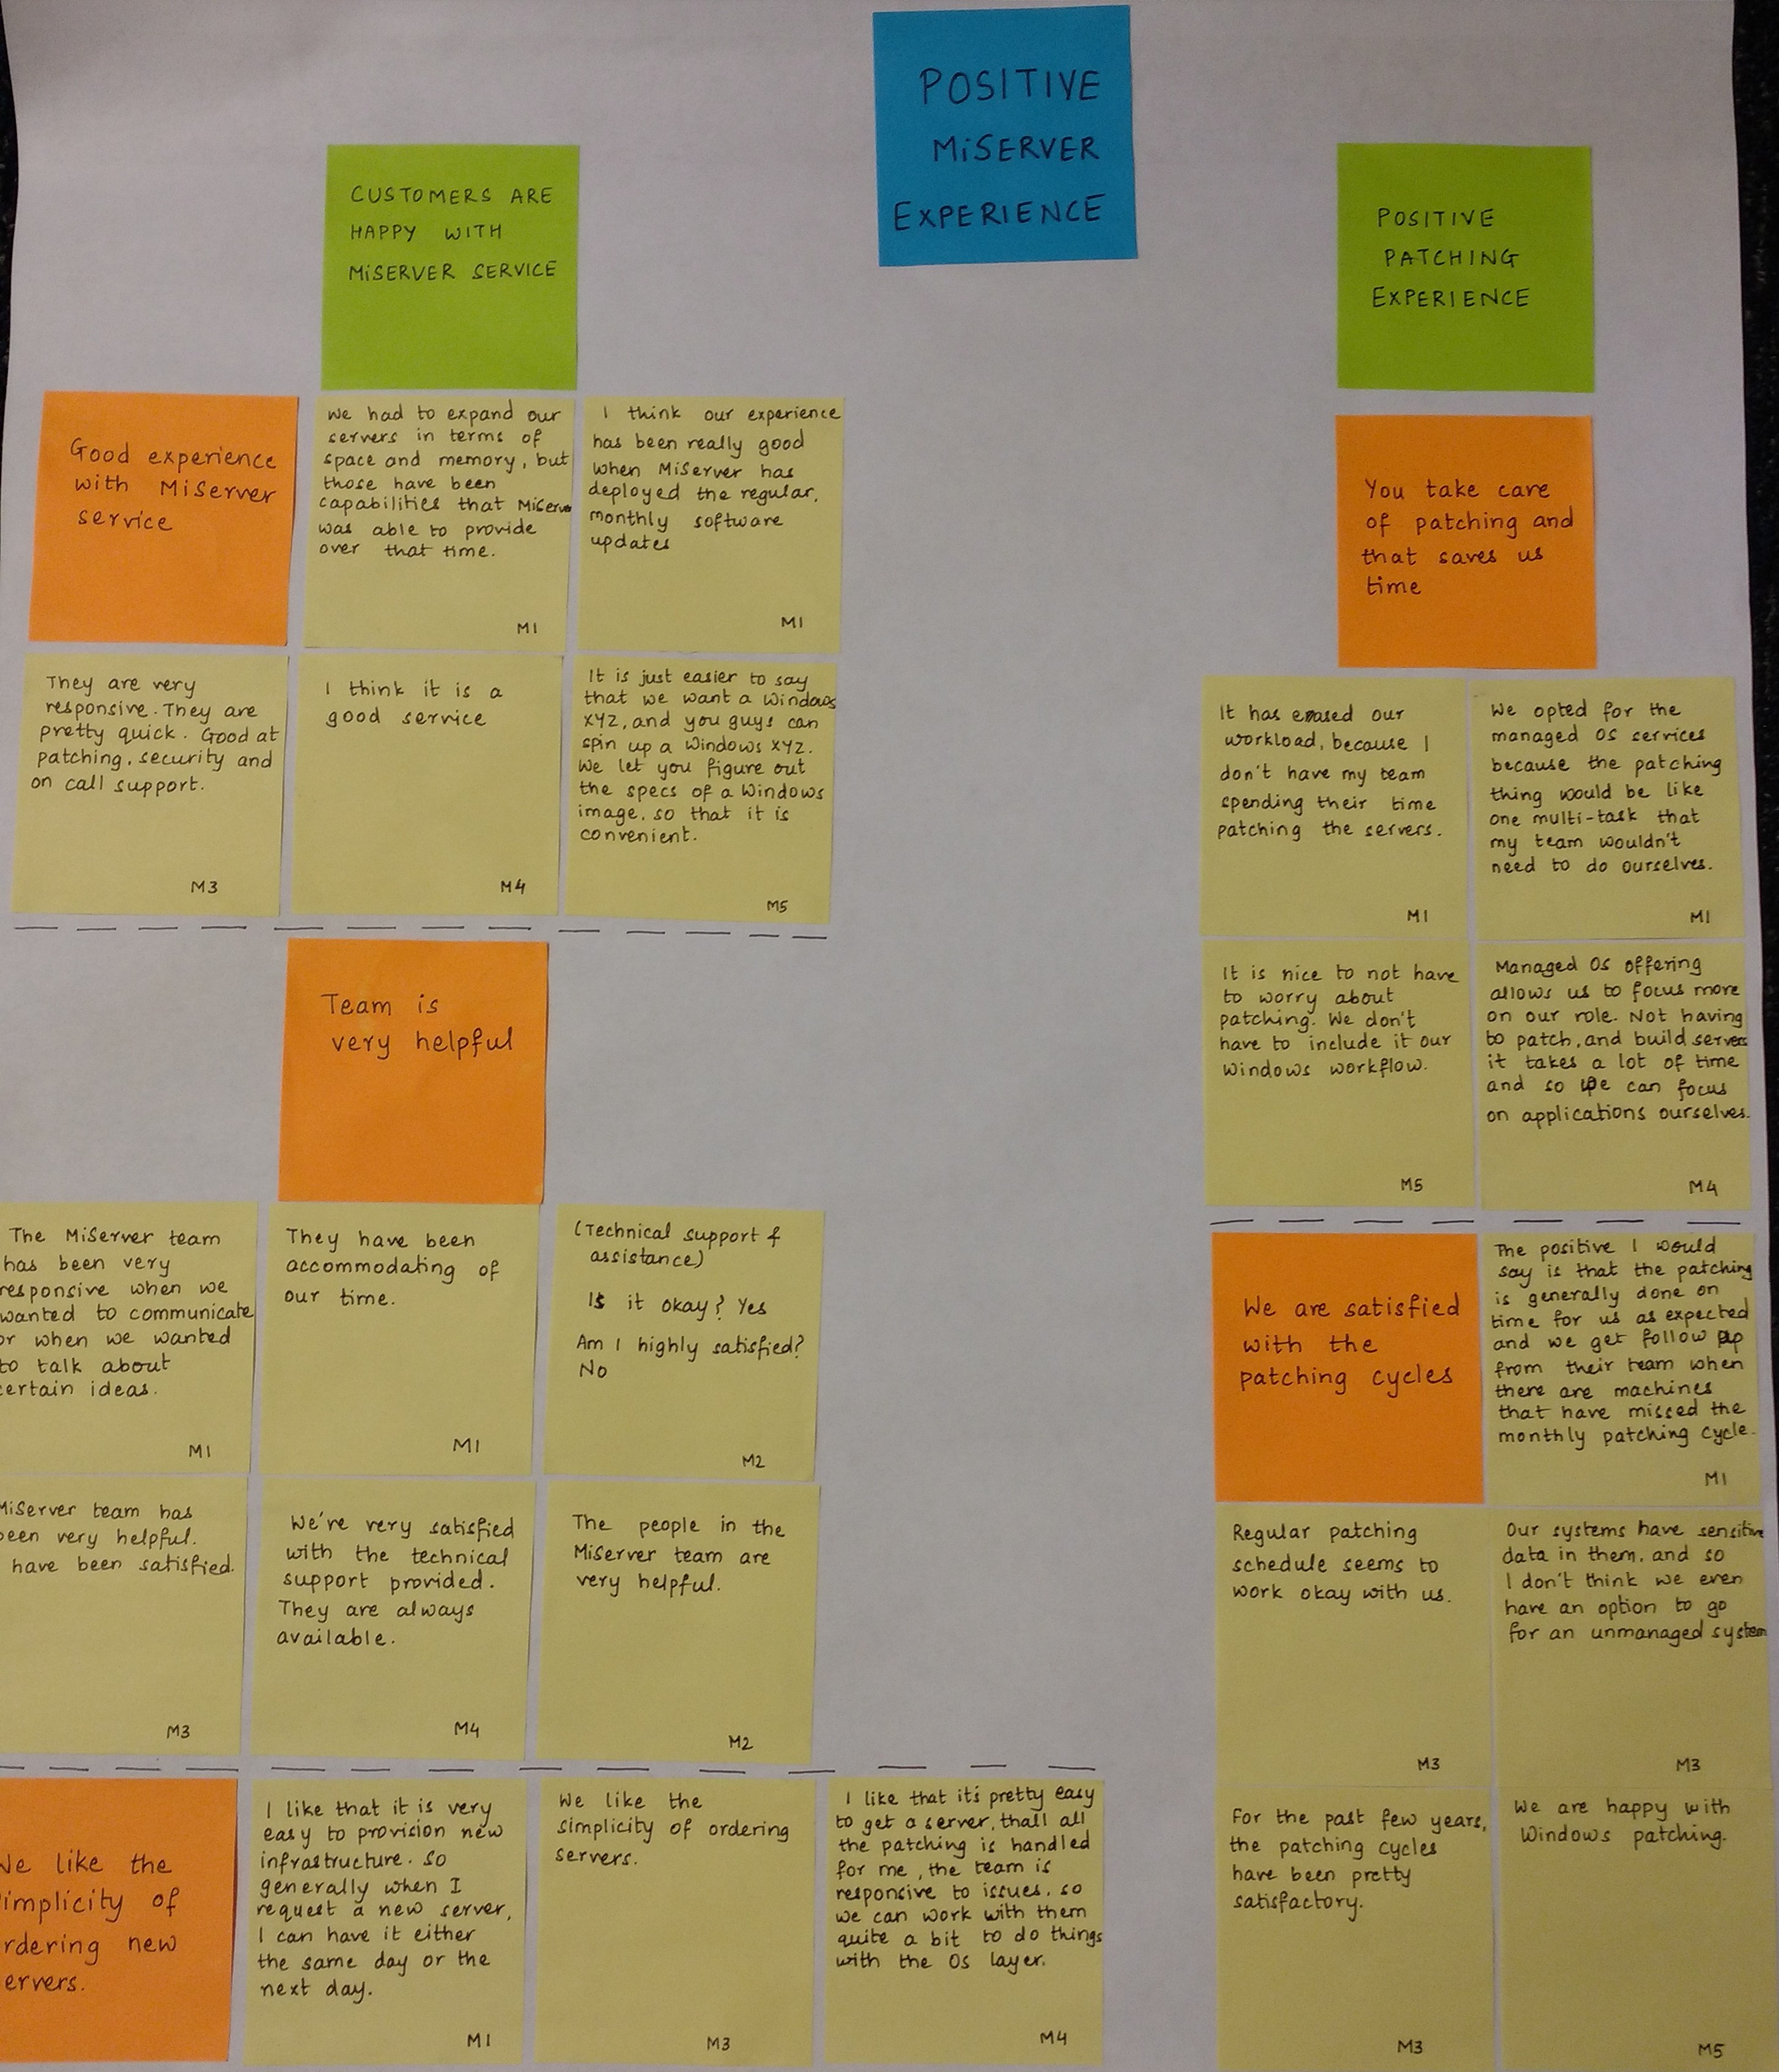 POSITIVE
MiSERVER
EXPERIENCE
CUSTOMERS ARE
HAPPY WITH
MiSERVER SERVICE
Good experience
with MiServer
service
We had to expand our
servers in terms of
space and memory, but
those have been
capabilities that MiServer
was able to provide
over that time.
M1
I think our experience
has been really good
when MiServer has
deployed the regular,
monthly software
updates
M1
They are very
responsive. They are
pretty quick. Good at
patching, security and
on call support.
M3
I think it is a
good service
M4
It is just easier to say
that we want a Windows
XYZ, and you guys can
spin up a Windows XYZ.
We let you figure out
the specs of a Windows
image, so that it is
convenient.
M5
Team is
very helpful
The MiServer team
has been very
responsive when we
wanted to communicate
or when we wanted
to talk about
certain ideas.
M1
They have been
accommodating of
our time.
M1
(Technical support &
assistance)
Is it okay? Yes
Am I highly satisfied?
No
M2
MiServer team has
been very helpful.
have been satisfied.
M3
We're very satisfied
with the technical
support provided.
They are always
available.
M4
The people in the
MiServer team are
very helpful.
M2
We like the
simplicity of
ordering new
servers.
I like that it is very
easy to provision new
infrastructure. So
generally when I
request a new server,
I can have it either
the same day or the
next day.
M1
We like the
simplicity of ordering
servers.
M3
I like that it's pretty easy
to get a server, thall all
the patching is handled
for me, the team is
responsive to issues. so
we can work with them
quite a bit to do things
with the OS layer.
M4
POSITIVE
PATCHING
EXPERIENCE
You take care
of patching and
that saves us
time
It has eased our
workload, because I
don't have my team
spending their time
patching the servers.
M1
We opted for the
managed OS services
because the patching
thing would be like
one multi-task that
my team wouldn't
need to do ourselves.
M1
It is nice to not have
to worry about
patching. We don't
have to include it our
Windows workflow.
M5
Managed OS offering
allows us to focus more
on our role. Not having
to patch, and build servers
it takes a lot of time
and so we can focus
on applications ourselves.
M4
We are satisfied
with the
patching cycles
The positive I would
say is that the patching
is generally done on
time for us as expected
and we get follow up
from their team when
there are machines
that have missed the
monthly patching cycle.
M1
Regular patching
schedule seems to
work okay with us.
M3
Our systems have sensitive
data in them, and so
I don't think we even
have an option to go
for an unmanaged system
M3
For the past few years,
the patching cycles
have been pretty
satisfactory.
M3
We are happy with
Windows patching.
M5